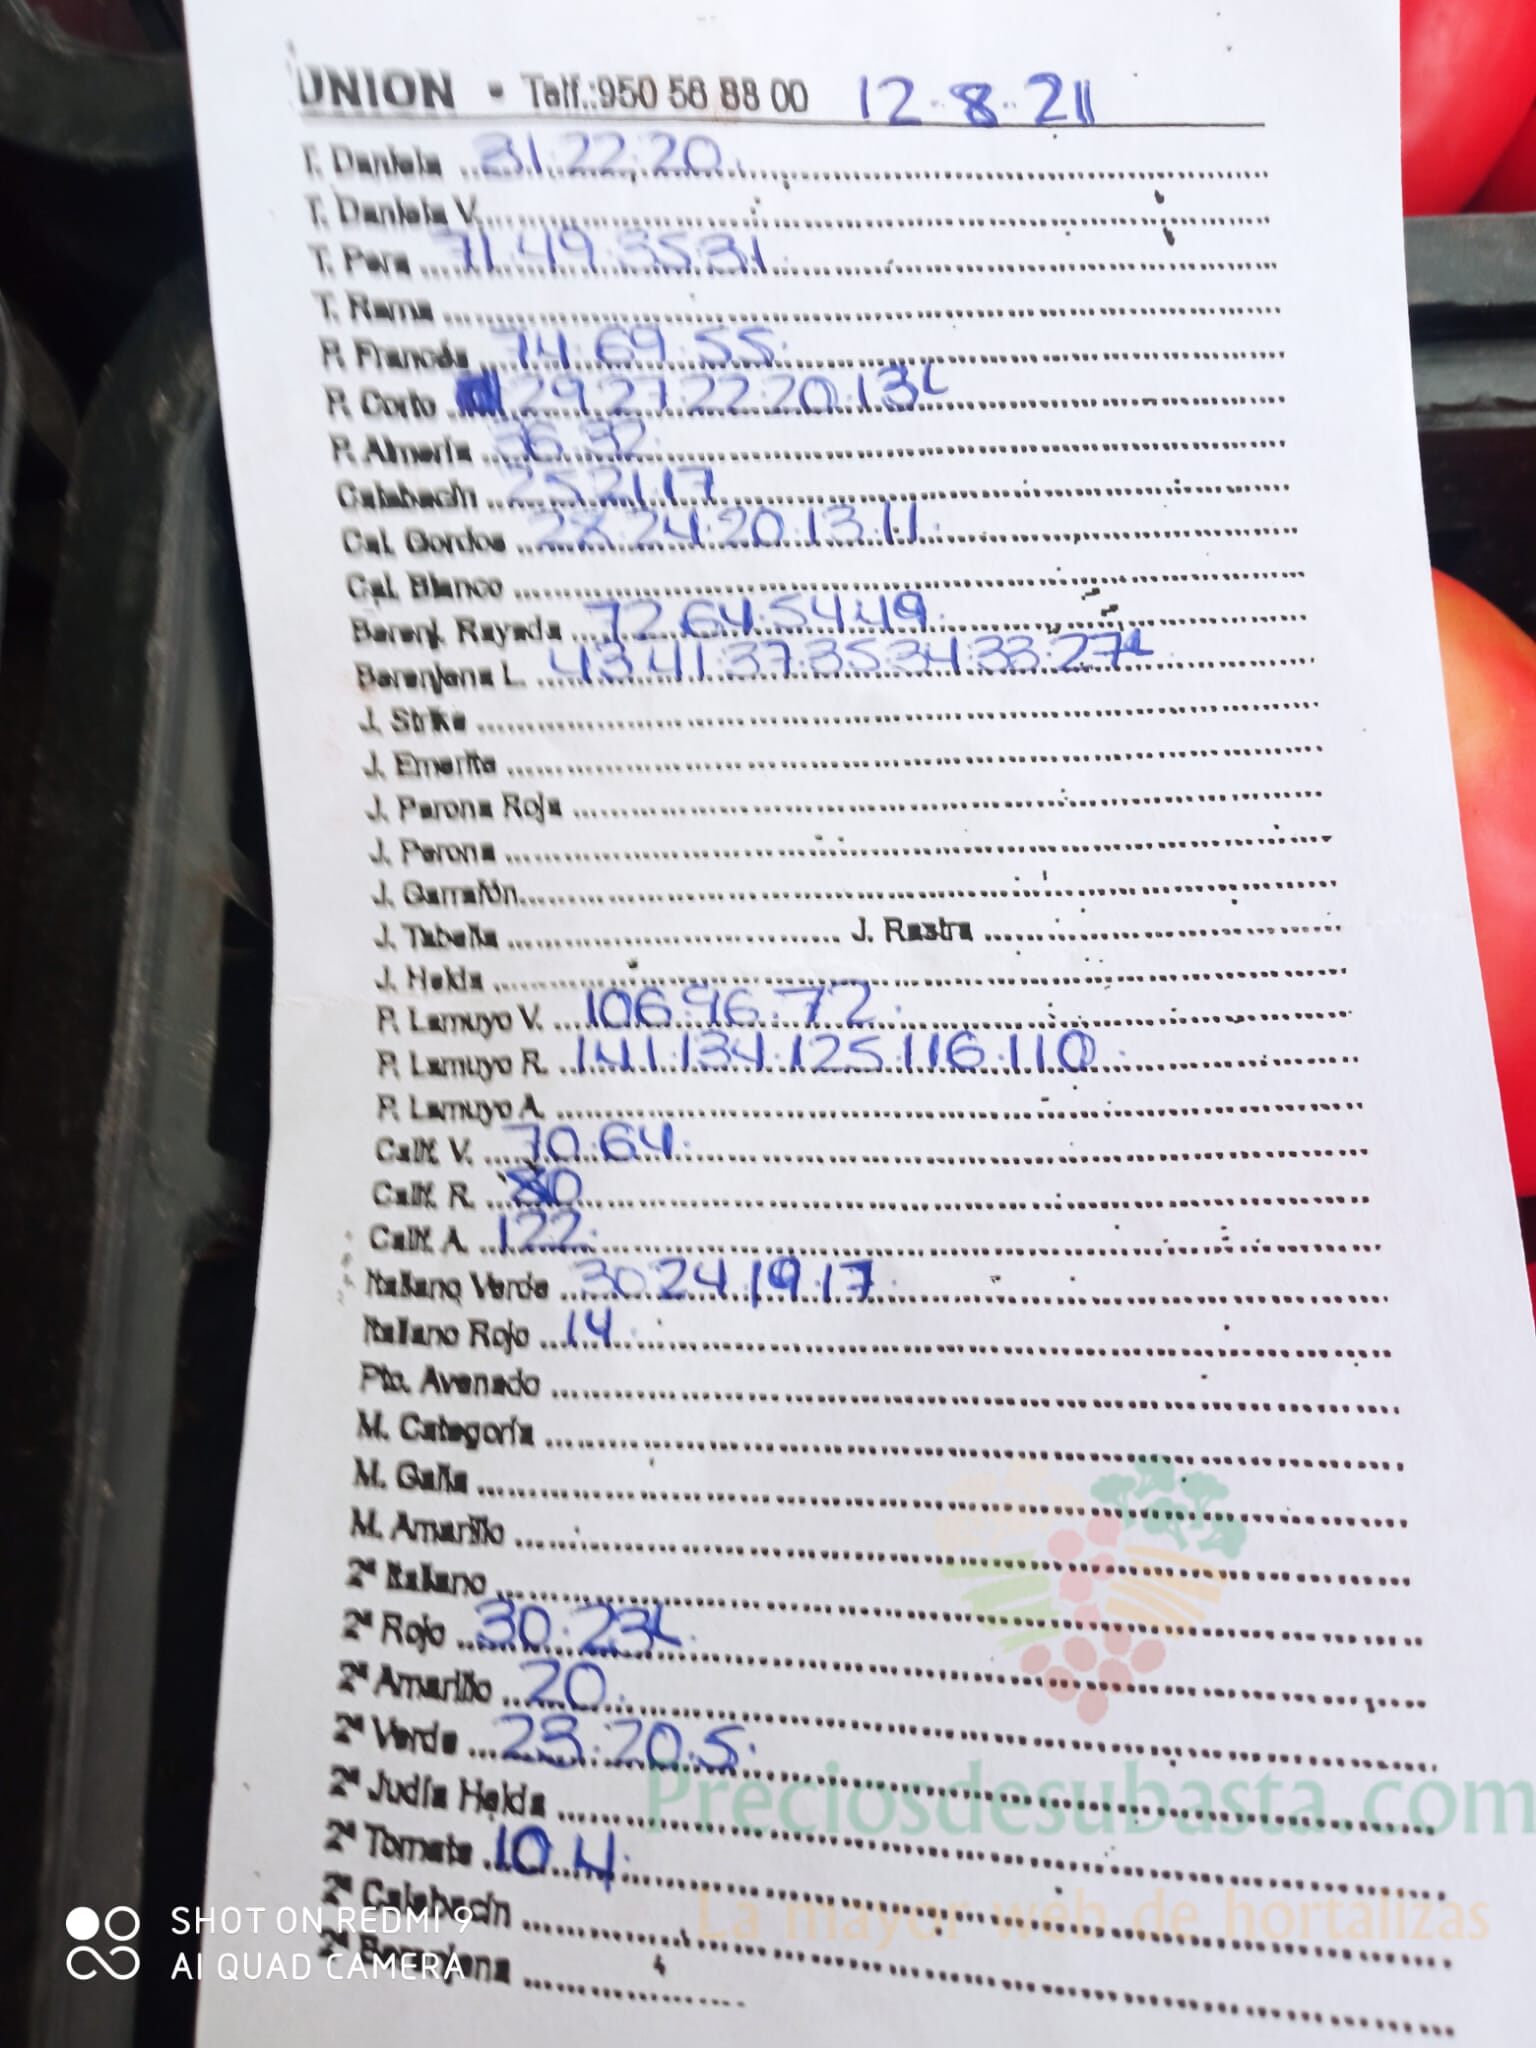 UNION • Telf.:950 56 88 00 12-8-21
T. Daniela 31.22.20.
T. Daniela V.
T. Pera 71.49.35.31
T. Rama
P. Francés 74.69.55.
P. Corto 29.27.22.20.13L
P. Almería 36.32.
Calabacín 25.21.17
Cal. Gordos 24.20.13.11.
Cal. Blanco
Berenj. Rayada 72.64.54.49.
Berenjena L. 43.41.37.35.34.33.27L
J. Strike
J. Emerite
J. Perona Roja
J. Perona
J. Garrafón
J. Tabella J. Rastra
J. Helda
P. Lamuyo V. 106.96.72.
P. Lamuyo R. 141.134.125.116.110.
P. Lamuyo A.
Calif. V. 70.64.
Calif. R. 80
Calif. A. 122.
Italiano Verde 30.24.19.17.
Italiano Rojo 14.
Pto. Avenado
M. Categoría
M. Galia
M. Amarillo
2ª Italiano
2ª Rojo 30.23L.
2ª Amarillo 20.
2ª Verde 23.20.5.
2ª Judía Helda
2ª Tomate 10.4.
2ª Calabacín
2ª Berenjena
Preciosdesubasta.com
La mayor web de hortalizas
SHOT ON REDMI 9
AI QUAD CAMERA